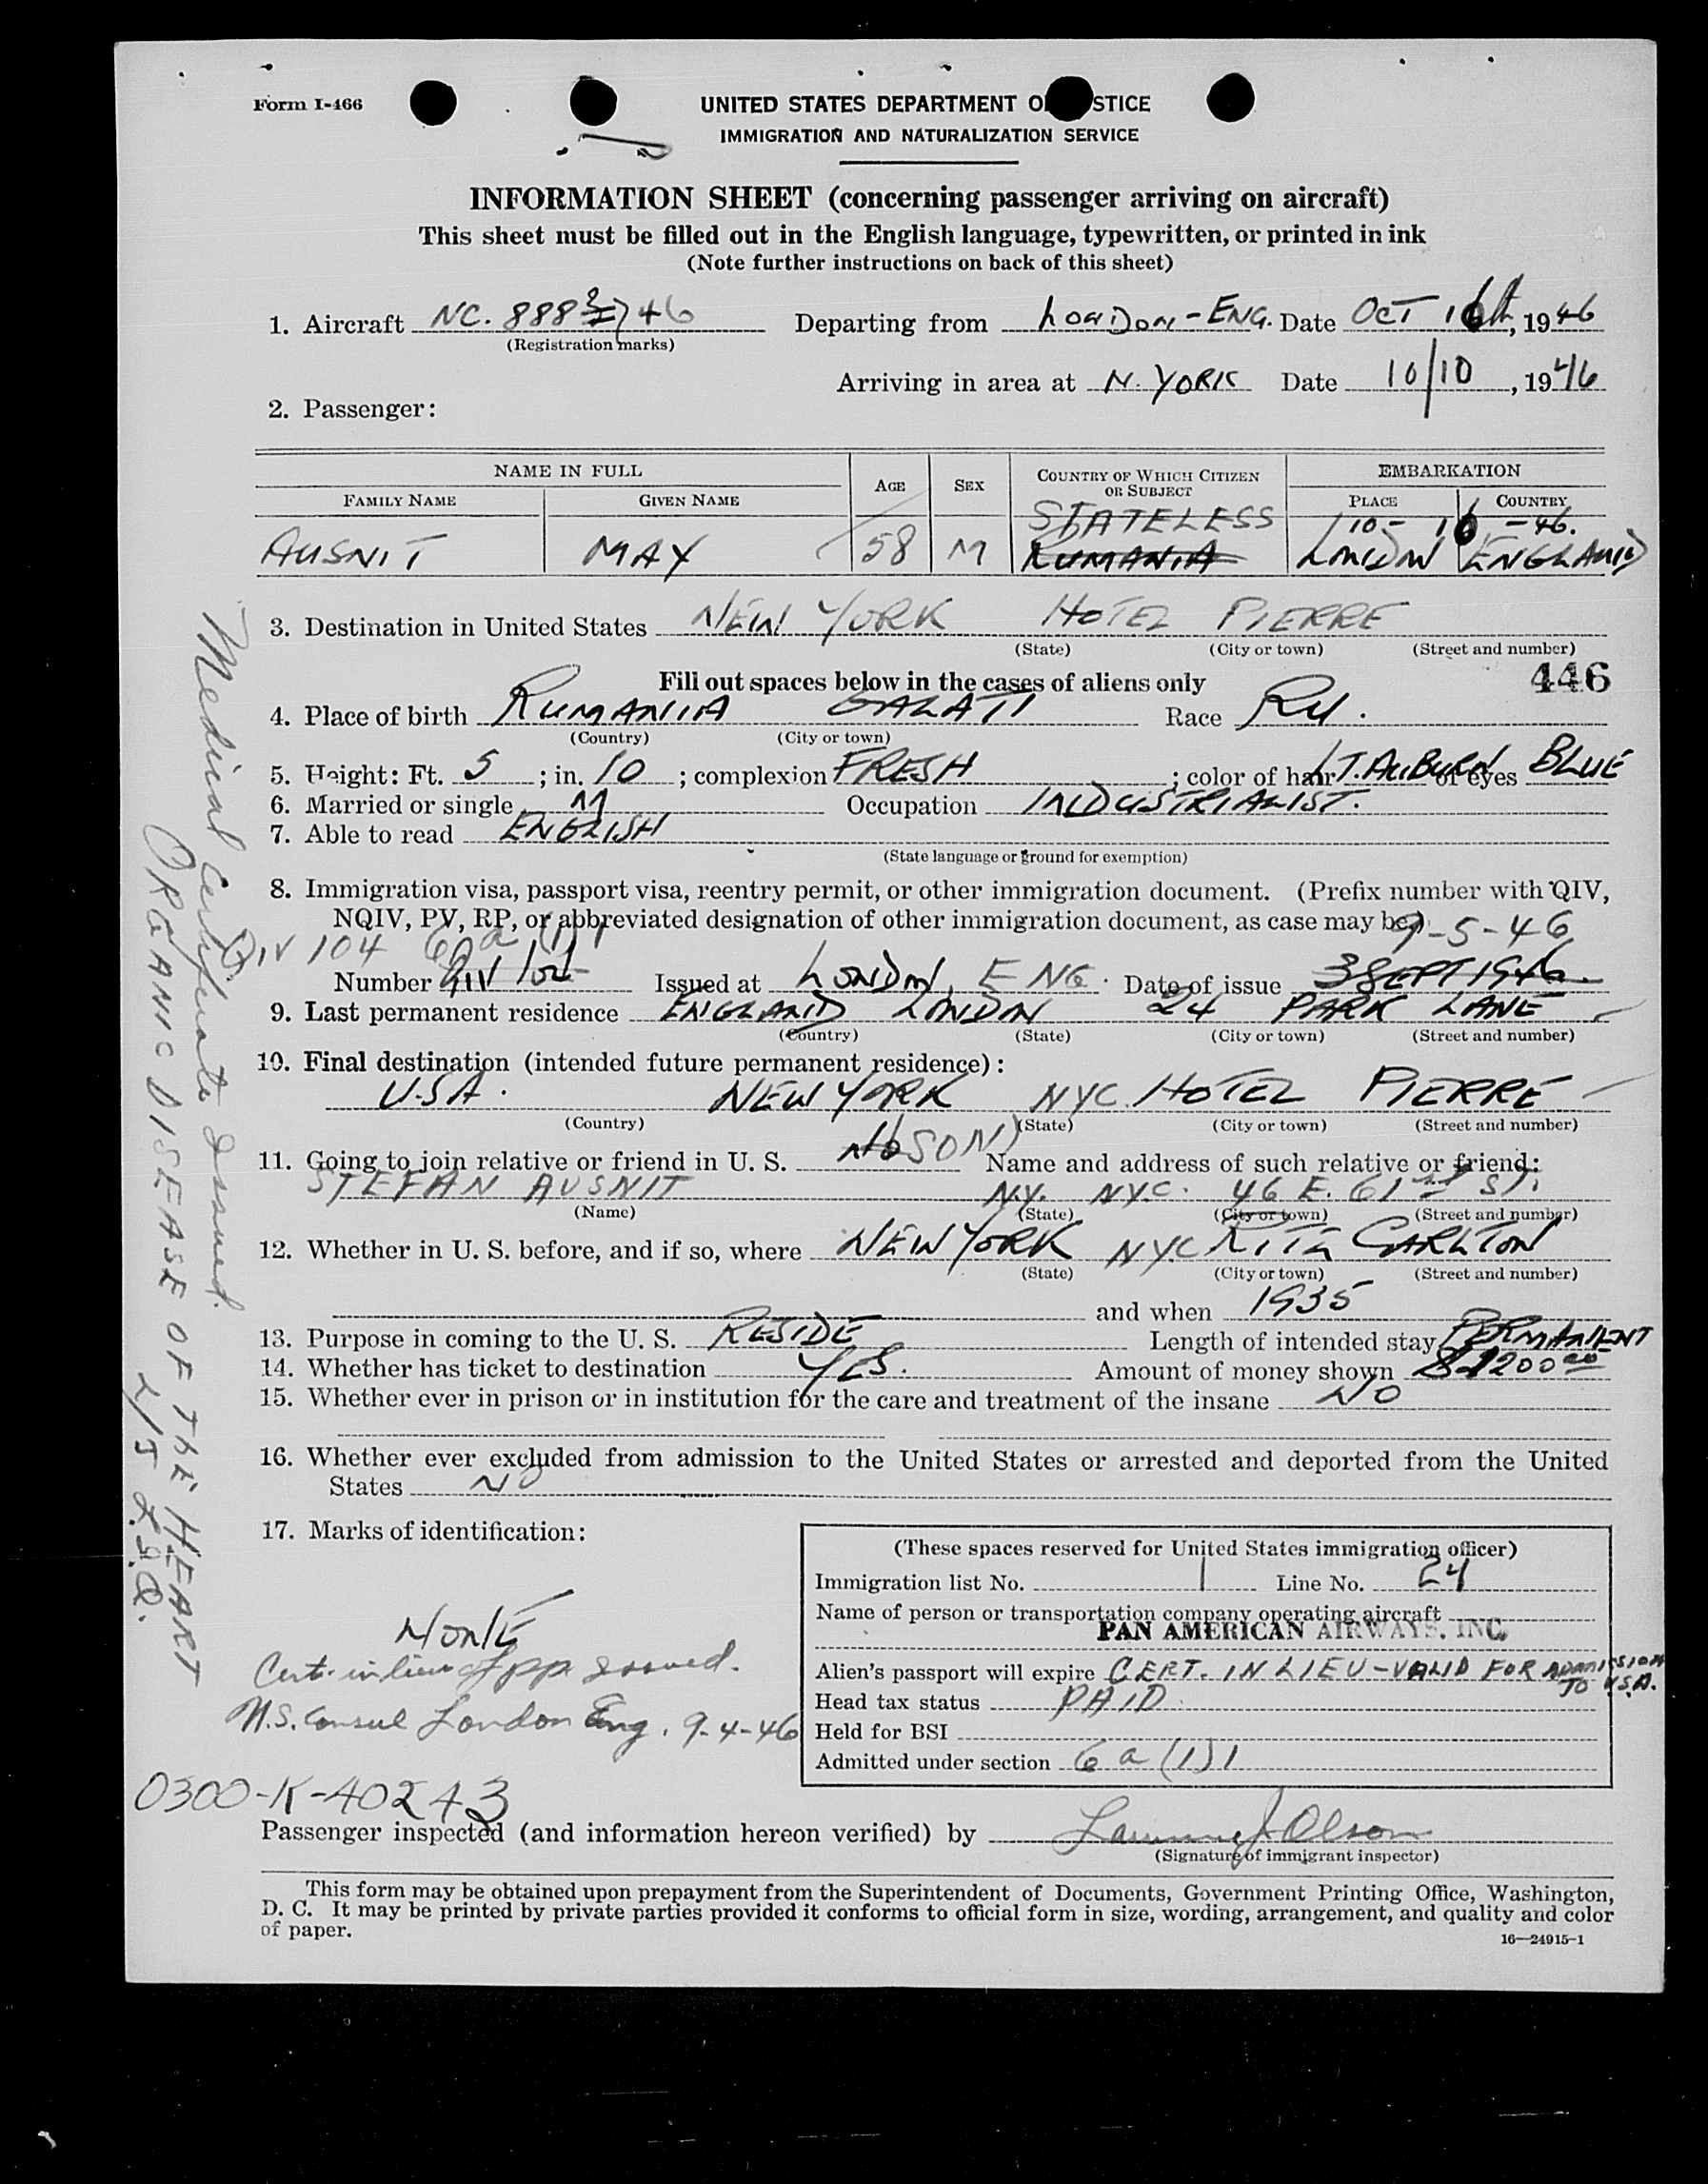 Form I-466
UNITED STATES DEPARTMENT O STICE
IMMIGRATION AND NATURALIZATION SERVICE
INFORMATION SHEET (concerning passenger arriving on aircraft)
This sheet must be filled out in the English language, typewritten, or printed in ink
(Note further instructions on back of this sheet)
1. Aircraft NC. 888 46 Departing from LONDON-ENG. Date OCT 16th, 1946
(Registration marks)
Arriving in area at N. YORK Date 10/10, 1946
2. Passenger:
NAME IN FULL AGE SEX COUNTRY OF WHICH CITIZEN OR SUBJECT EMBARKATION
FAMILY NAME GIVEN NAME PLACE COUNTRY
STATELESS 10-16-46.
AUSNIT MAX 58 M RUMANIA LONDON ENGLAND
3. Destination in United States NEW YORK HOTEL PIERRE
(State) (City or town) (Street and number)
446
Fill out spaces below in the cases of aliens only
4. Place of birth RUMANIA GALATI Race Ru.
(Country) (City or town)
5. Height: Ft. 5; in. 10; complexion FRESH; color of hair LT. AUBURN of eyes BLUE
6. Married or single M Occupation INDUSTRIALIST.
7. Able to read ENGLISH
(State language or ground for exemption)
8. Immigration visa, passport visa, reentry permit, or other immigration document. (Prefix number with QIV,
NQIV, PV, RP, or abbreviated designation of other immigration document, as case may be.)
QIV 104 6a(1)1 9-5-46
Number QIV 104 Issued at LONDON, ENG. Date of issue 3 SEPT 1946.
9. Last permanent residence ENGLAND LONDON 24 PARK LANE
(Country) (State) (City or town) (Street and number)
10. Final destination (intended future permanent residence):
U.S.A. NEW YORK NYC. HOTEL PIERRE
(Country) (State) (City or town) (Street and number)
11. Going to join relative or friend in U. S. No SON) Name and address of such relative or friend:
STEFAN AUSNIT N.Y. NYC. 46 E. 61st St.
(Name) (State) (City or town) (Street and number)
12. Whether in U. S. before, and if so, where NEW YORK NYC RITZ CARLTON
(State) (City or town) (Street and number)
and when 1935
13. Purpose in coming to the U. S. RESIDE Length of intended stay PERMANENT
14. Whether has ticket to destination YES. Amount of money shown $1200.00
15. Whether ever in prison or in institution for the care and treatment of the insane NO
16. Whether ever excluded from admission to the United States or arrested and deported from the United
States NO
17. Marks of identification:
NONE
Cert. in lieu of pp. issued.
U.S. Consul London Eng. 9-4-46
(These spaces reserved for United States immigration officer)
Immigration list No. 1 Line No. 24
Name of person or transportation company operating aircraft
PAN AMERICAN AIRWAYS, INC.
Alien's passport will expire CERT. IN LIEU-VALID FOR ADMISSION TO U.S.A.
Head tax status PAID
Held for BSI
Admitted under section 6a(1)1
0300-K-40243
Passenger inspected (and information hereon verified) by Olson
(Signature of immigrant inspector)
This form may be obtained upon prepayment from the Superintendent of Documents, Government Printing Office, Washington,
D. C. It may be printed by private parties provided it conforms to official form in size, wording, arrangement, and quality and color
of paper.
16—24915-1
Medical Certificate Issued.
ORGANIC DISEASE OF THE HEART